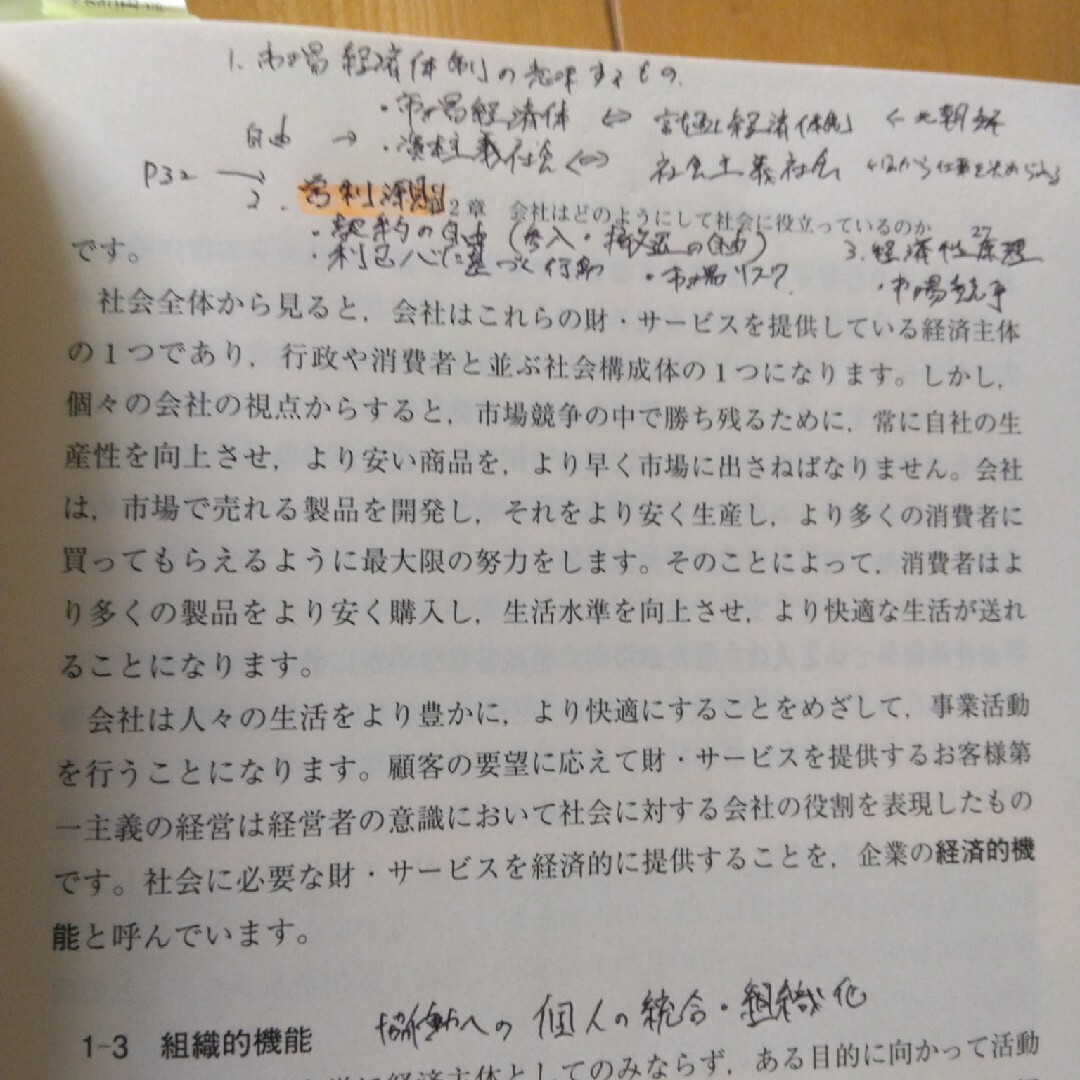 1. 市場経済体制の意味するもの.
・市場経済体 ⇔ 計画経済体制 ← 北朝鮮
自由 → ・資本主義社会 ⇔ 社会主義社会
P32 → 2. 営利原則
第2章 会社はどのようにして社会に役立っているのか 27
・契約の自由 (参入・撤退の自由) 3. 経済性原理
・利己心に基づく行動 ・市場リスク. ・市場競争
です。
社会全体から見ると，会社はこれらの財・サービスを提供している経済主体
の1つであり，行政や消費者と並ぶ社会構成体の1つになります。しかし，
個々の会社の視点からすると，市場競争の中で勝ち残るために，常に自社の生
産性を向上させ，より安い商品を，より早く市場に出さねばなりません。会社
は，市場で売れる製品を開発し，それをより安く生産し，より多くの消費者に
買ってもらえるように最大限の努力をします。そのことによって，消費者はよ
り多くの製品をより安く購入し，生活水準を向上させ，より快適な生活が送れ
ることになります。
会社は人々の生活をより豊かに，より快適にすることをめざして，事業活動
を行うことになります。顧客の要望に応えて財・サービスを提供するお客様第
一主義の経営は経営者の意識において社会に対する会社の役割を表現したもの
です。社会に必要な財・サービスを経済的に提供することを，企業の経済的機
能と呼んでいます。
協働への 個人の統合・組織化
1-3 組織的機能
に経済主体としてのみならず，ある目的に向かって活動